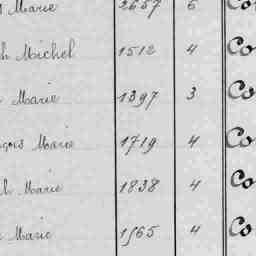 Marie 2657 6 Co
h Michel 1512 4 Co
Marie 1397 3 Co
çois Marie 1719 4 Co
h Marie 1838 4 Co
Marie 1565 4 Co